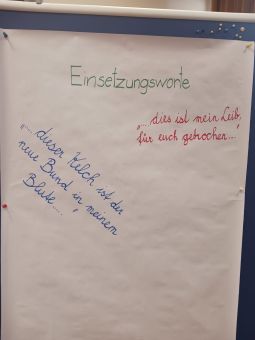 Einsetzungsworte
„....dies ist mein Leib,
für euch gebrochen...."
„....dieser Kelch ist der
neue Bund in meinem
Blute...."